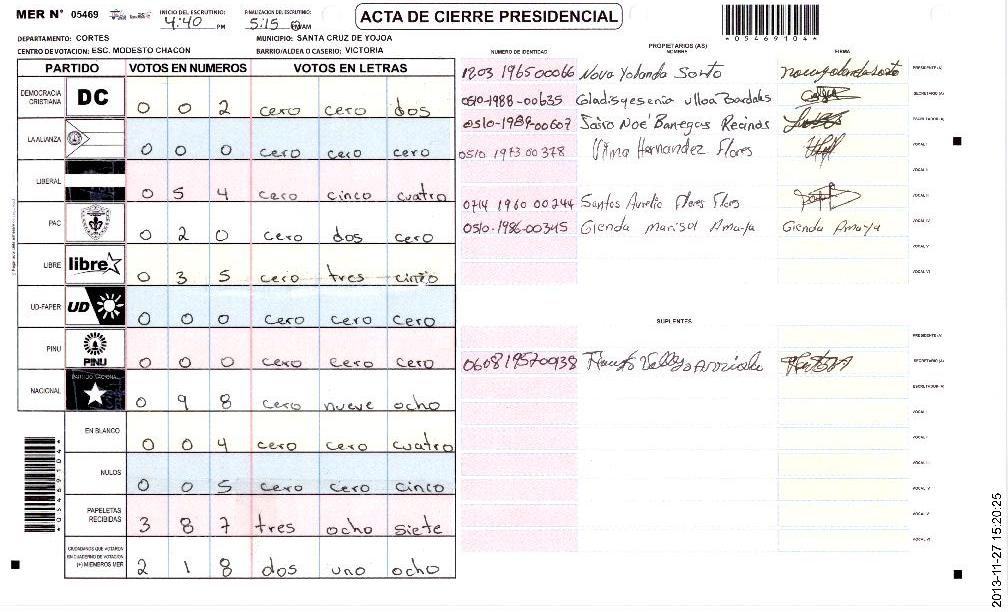 MER N° 05469
INICIO DEL ESCRUTINIO: 4:40 PM
FINALIZACION DEL ESCRUTINIO: 5:15 PM/AM
ACTA DE CIERRE PRESIDENCIAL
*05469104*
DEPARTAMENTO: CORTES
MUNICIPIO: SANTA CRUZ DE YOJOA
CENTRO DE VOTACION: ESC. MODESTO CHACON
BARRIO/ALDEA O CASERIO: VICTORIA
PARTIDO VOTOS EN NUMEROS VOTOS EN LETRAS
DEMOCRACIA CRISTIANA DC 0 0 2 cero cero dos
LA ALIANZA 0 0 0 cero cero cero
LIBERAL 0 5 4 cero cinco cuatro
PAC 0 2 0 cero dos cero
LIBRE libre 0 3 5 cero tres cinco
UD-FAPER UD 0 0 0 cero cero cero
PINU PINU 0 0 0 cero cero cero
NACIONAL PARTIDO NACIONAL 0 9 8 cero nueve ocho
EN BLANCO 0 0 4 cero cero cuatro
NULOS 0 0 5 cero cero cinco
PAPELETAS RECIBIDAS 3 8 7 tres ocho siete
CIUDADANOS QUE VOTARON EN CUADERNO DE VOTACION (+) MIEMBROS MER 2 1 8 dos uno ocho
*05469104*
PROPIETARIOS (AS)
NUMERO DE IDENTIDAD NOMBRE FIRMA
1203 1965 00066 Nova Yolanda Sosto PRESIDENTE (A)
0510-1988-00635 Gladis yesenia ulloa Bardales SECRETARIO (A)
0510-1989-00607 Jairo Noé Banegas Recinos ESCRUTADOR (A)
0510 1973 00378 Vilma Hernandez Flores VOCAL I
VOCAL II
0714 1960 00244 Santos Aurelio Flores Flores VOCAL III
0510-1986-00345 Glenda Marisol Amaya Glenda Amaya VOCAL IV
VOCAL V
VOCAL VI
SUPLENTES
PRESIDENTE (A)
0608 1957 00938 SECRETARIO (A)
ESCRUTADOR (A)
VOCAL I
VOCAL II
VOCAL III
VOCAL IV
VOCAL V
VOCAL VI
2013-11-27 15:20:25